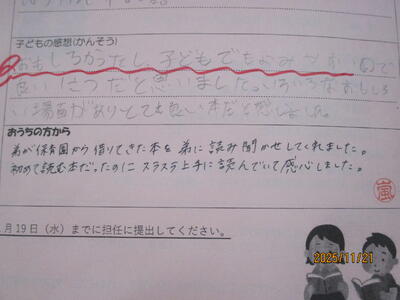 子どもの感想(かんそう)
おもしろかったし、子どもでもよみやすいので
良いさつだと思いました。いろいろなおもしろ
い場面がありとても良い本だと感じました。
おうちの方から
弟が保育園から借りてきた本を弟に読み聞かせしてくれました。
初めて読む本だったのにスラスラ上手に読んでいて感心しました。
嵐
月19日(水)までに担任に提出してください。
2025/11/21